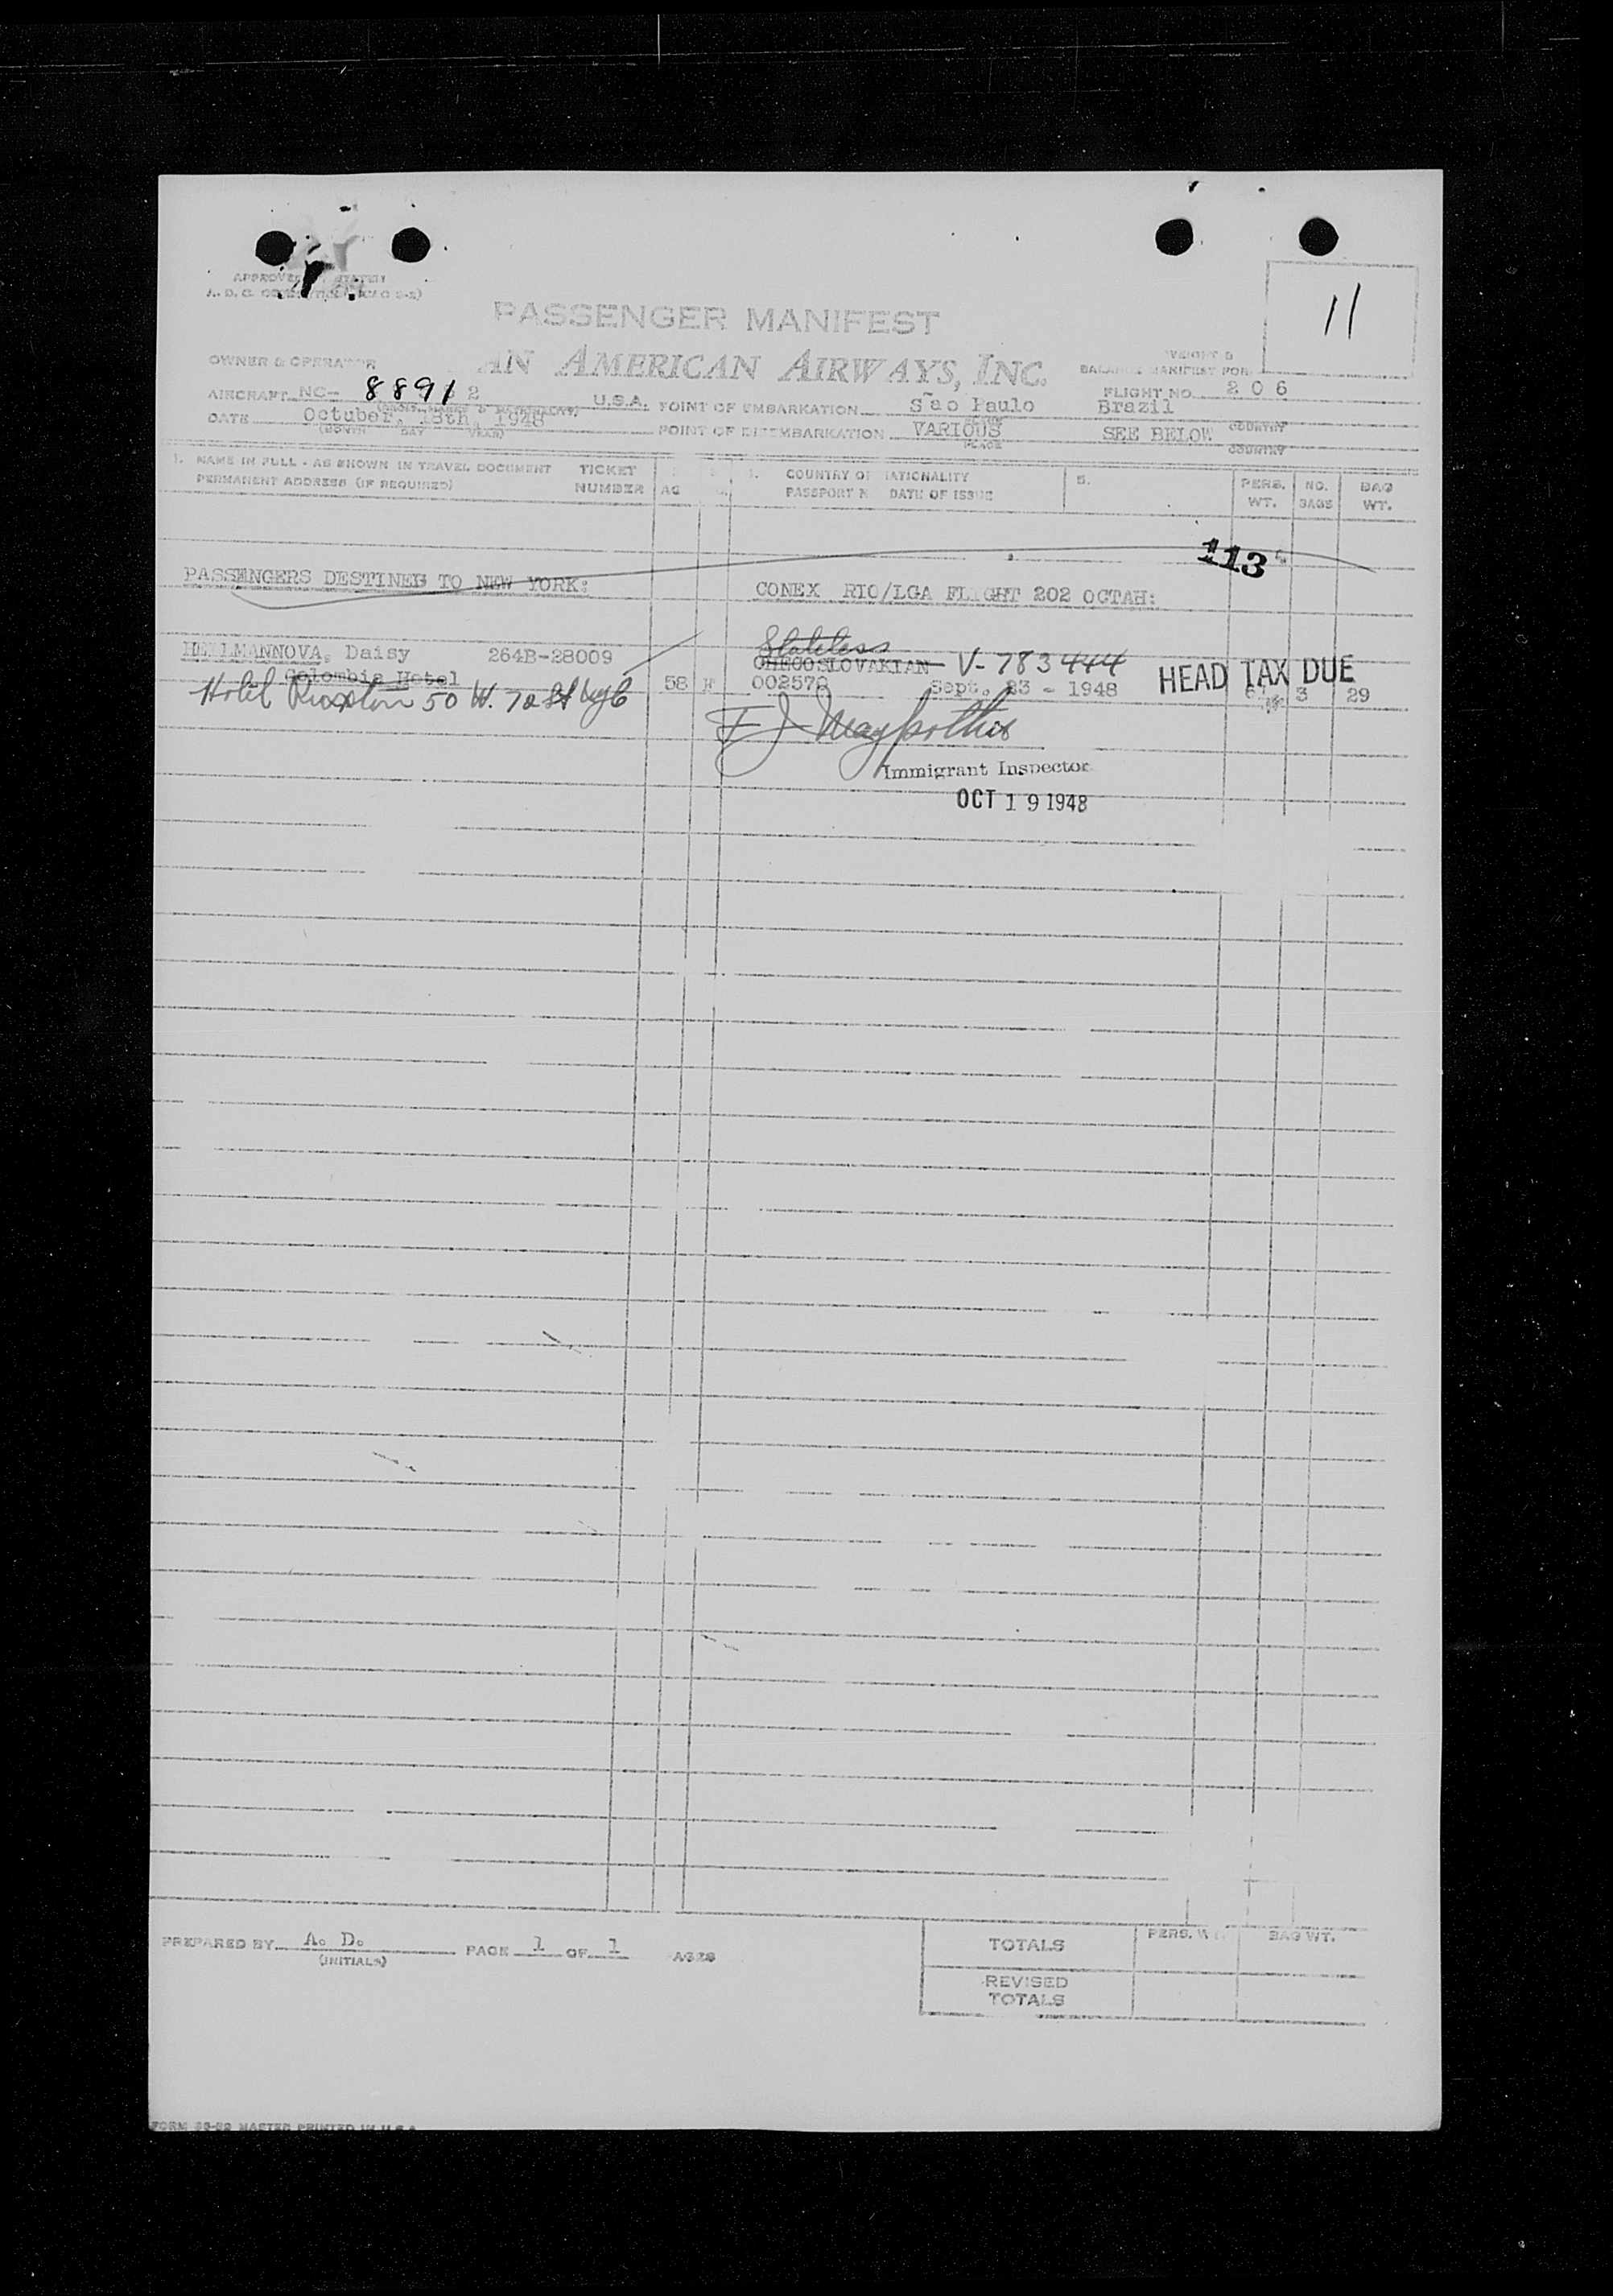 11
PASSENGER MANIFEST
OWNER & OPERATOR AN AMERICAN AIRWAYS, INC.
WEIGHT &
BALANCE MANIFEST FOR
AIRCRAFT NC- 8891 2 U.S.A. POINT OF EMBARKATION São Paulo Brazil FLIGHT NO. 206
DATE October, 18th, 1948 POINT OF DISEMBARKATION VARIOUS SEE BELOW
(MONTH DAY YEAR) PLACE COUNTRY
1. NAME IN FULL - AS SHOWN IN TRAVEL DOCUMENT TICKET COUNTRY OF NATIONALITY 5. PERS. NO. BAG
PERMANENT ADDRESS (IF REQUIRED) NUMBER AG PASSPORT N DATE OF ISSUE WT. BAGS WT.
113
PASSENGERS DESTINED TO NEW YORK: CONEX RIO/LGA FLIGHT 202 OCTAH:
Stateless
HEILMANNOVA, Daisy 264B-28009 CHECOSLOVAKIAN V-783444 HEAD TAX DUE
Colombia Hotel 58 002570 Sept. 23 - 1948 3 29
Hotel 50 W. 72 St
Immigrant Inspector
OCT 19 1948
PREPARED BY A. D. PAGE 1 OF 1 AGES
(INITIALS)
TOTALS PERS. W BAG WT.
REVISED
TOTALS
FORM MASTER PRINTED IN U.S.A.